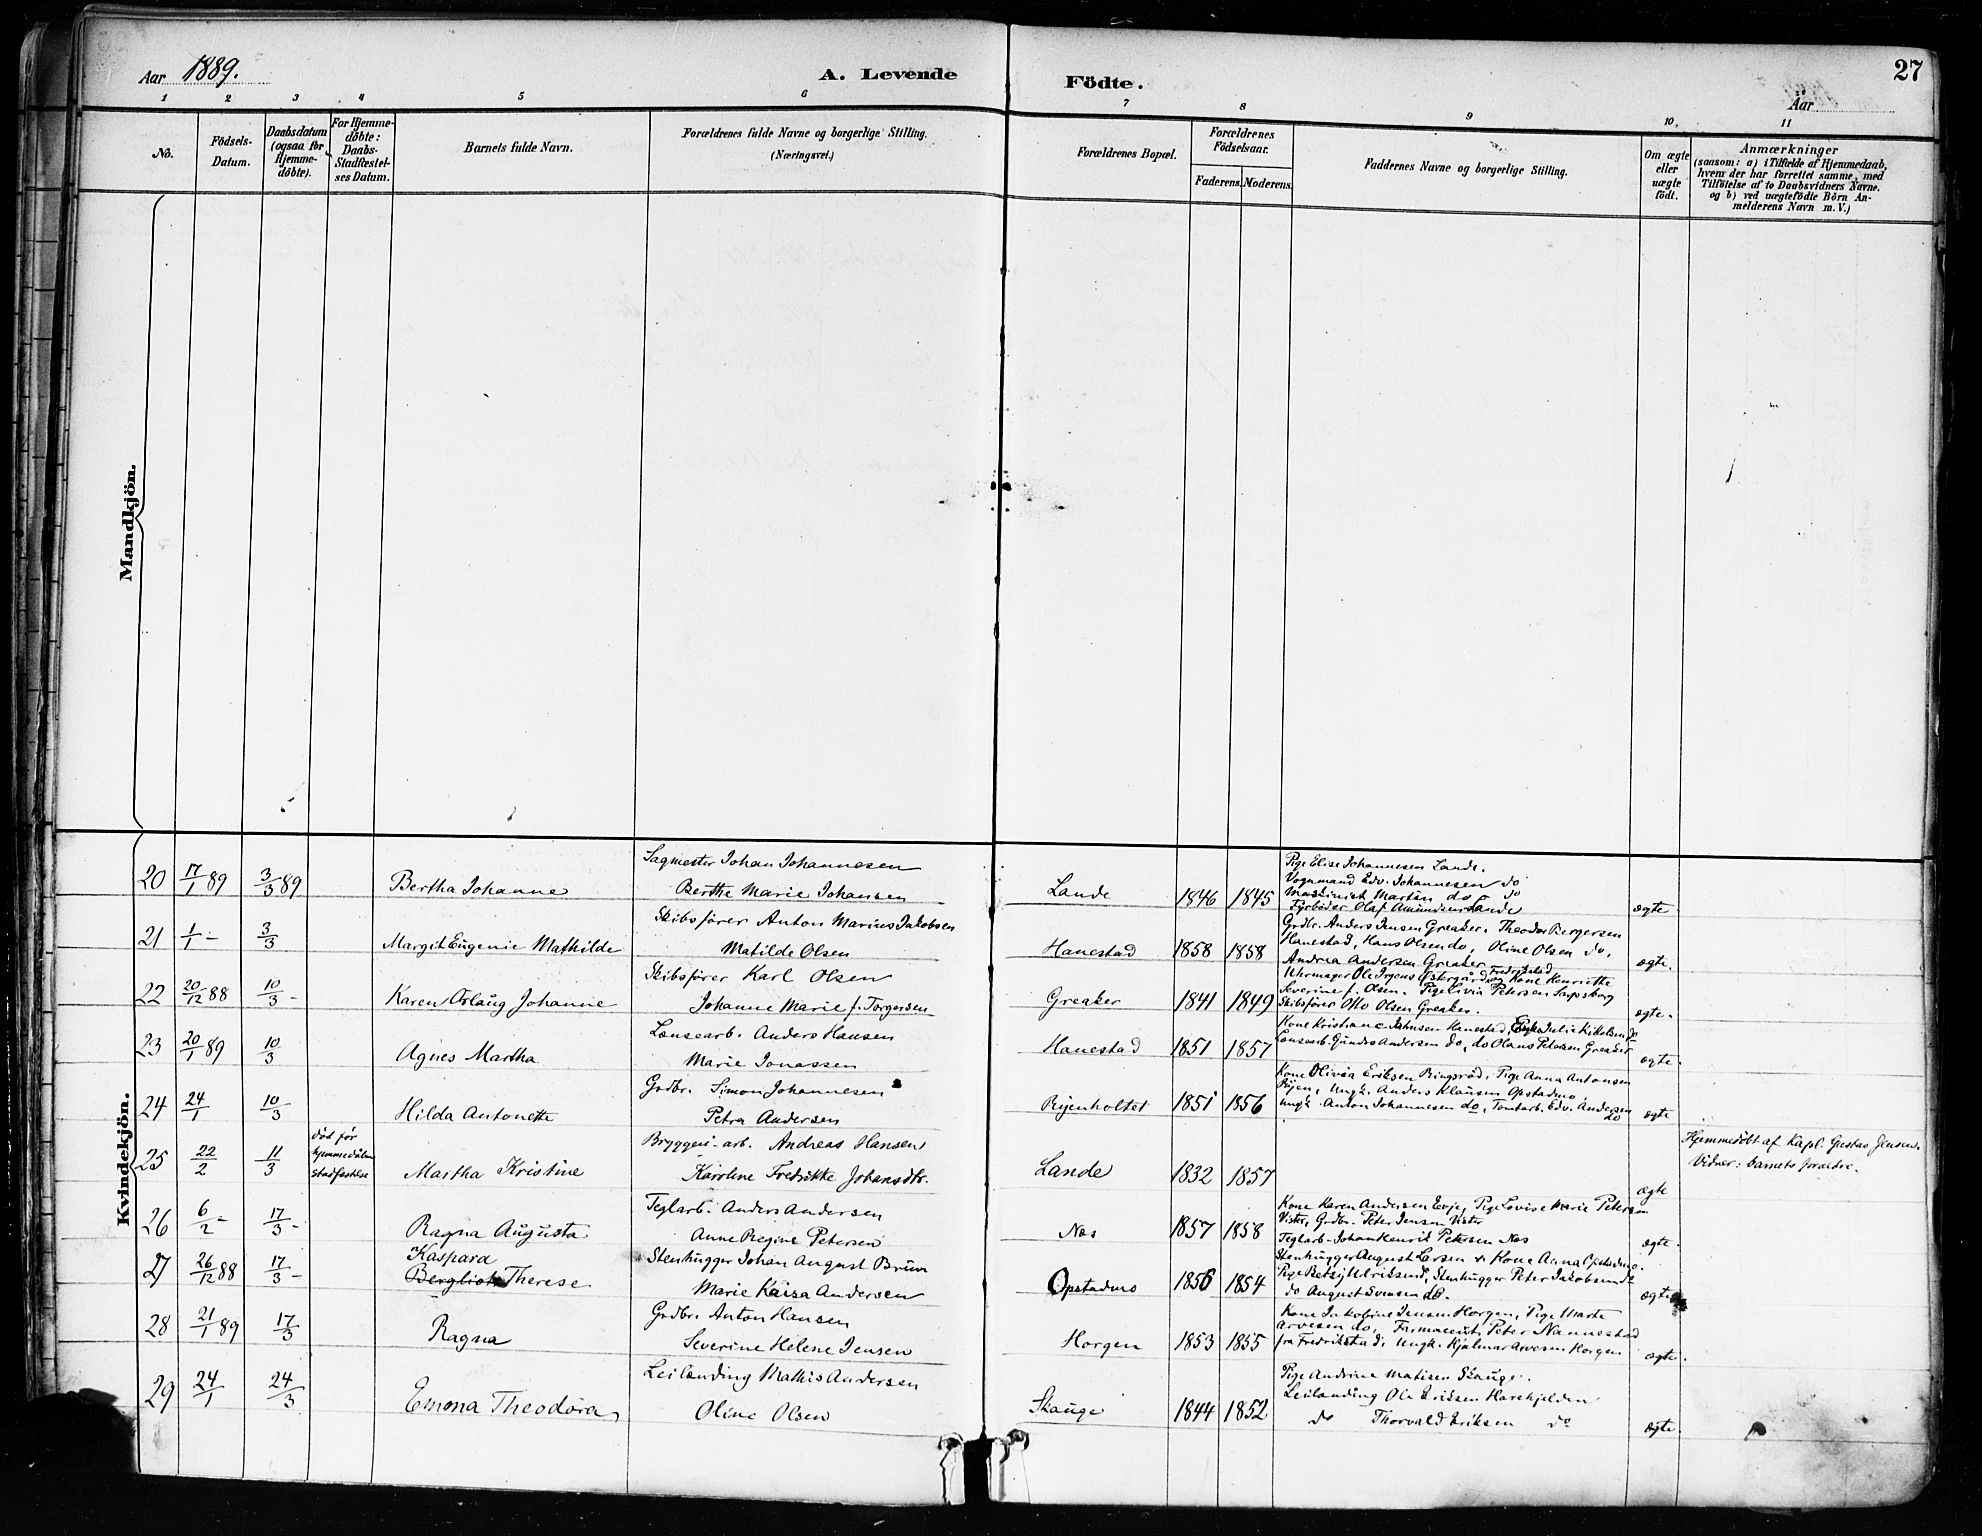 Aar 1889.
A. Levende
Födte.
Aar
27
1 2 3 4 5 6 7 8 9 10. 11
No.
Födsels-
Datum.
Daabsdatum
(ogsaa for
Hjemme-
döbte).
For Hjemme-
döbte:
Daabs-
Stadfæstel-
ses Datum.
Barnets fulde Navn.
Forældrenes fulde Navne og borgerlige Stilling.
(Næringsvei.)
Forældrenes Bopæl.
Forældrenes
Födselsaar.
Faderens. Moderens.
Faddernes Navne og borgerlige Stilling.
Om ægte
eller
uægte
födt.
Anmærkninger
(saasom: a) i Tilfælde af Hjemmedaab,
hvem der har forrettet samme, med
Tilföielse af to Daabsvidners Navne.
og b) ved uægtefödte Börn An-
melderens Navn m. V.)
Mandkjön.
Kvindekjön.
20 17/1 89 3/3 89 Bertha Johanne
Sagmester Johan Johannesen
Berthe Marie Johansen
Lande 1846 1845
Pige Elise Johannesen Lande.
Vognmand Edv. Johannesen do
Maskinist Martin do do
Fyrböder Olaf Amundsen Lande
ægte.
21 1/1 - 3/3 Margit Eugenie Mathilde
Skibsförer Anton Marius Jakobsen
Matilde Olsen
Hanestad 1858 1858
Grdbr. Anders Jensen Greaker. Theodor Bergersen
Hanestad, Hans Olsen do, Oline Olsen do.
Andrea Andersen Greaker
ægte.
22 20/12 88 10/3 - Karen Aslaug Johanne
Skibsförer Karl Olsen
Johanne Marie f. Torgersen
Greaker 1841 1849
Uhrmager Ole Irgens Östergård Fredrikstad og Kone Henriette
Severine f. Olsen. Pige Livia Petersen Sarpsborg
Skibsförer Otto Olsen Greaker.
ægte.
23 20/1 89 10/3 Agnes Martha
Lænsearb. Anders Hansen
Marie Jonassen
Hanestad 1851 1857
Kone Kristiane Johnsen Hanestad, Enke Julie Kikelsen do
Lænsearb. Gunder Andersen do, do Olaus Petersen Greaker
ægte.
24 24/1 10/3 Hilda Antonette
Grdbr. Simon Johannesen
Petra Andersen
Ryenholtet 1851 1856
Kone Olivia Eriksen Ringsröd, Pige Anna Antonsen
Ryen, Ungk. Anders Klausen Opstadmo,
Ungk. Anton Johannesen do, Tomtarb. Edv. Andersen
do
ægte
25 22/2 11/3
död för
hjemmedåben
stadfæstelse
Martha Kristine
Bryggeri-arb. Andreas Hansen
Karoline Fredrikke Johansdtr.
Lande 1832 1857
ægte
Hjemmedöbt af Kapl. Gustav Jensen.
Vidner: barnets forældre.
26 6/2 - 17/3 - Ragna Augusta
Teglarb. Anders Andersen
Anne Regine Petersen
Næs 1857 1858
Kone Karen Andersen Evje, Pige Lovise Marie Petersen
Vister, Grdbr. Peter Jensen Vister
Teglarb. Johan Henrik Petersen Næs
ægte.
27 26/12 88 17/3 -
Kaspara
Bergliot Therese
Stenhugger Johan August Brun
Marie Kaisa Andersen
Opstadmo 1856 1854
Stenhugger August Larsen & Kone Anna Opstadmo.
Pige Betsy Ulriksen do, Stenhugger Peter Jakobsen do
do August Svensen do.
ægte
28 21/1 89 17/3 Ragna
Grdbr. Anton Hansen
Severine Helene Jensen
Horgen 1853 1855
Kone Jakobine Jensen Horgen, Pige Marte
Arvesen do, Farmaceut Peter Nannestad
fra Fredrikstad, Ungk. Hjalmar Arvesen Horgen
ægte.
29 24/1 24/3 Emma Theodora
Leilænding Mathis Andersen
Oline Olsen
Skauge 1844 1852
Pige Andrine Matisen Skauge.
Leilænding Ole Eriksen Harekjelden
do Thorvald Eriksen do
ægte.